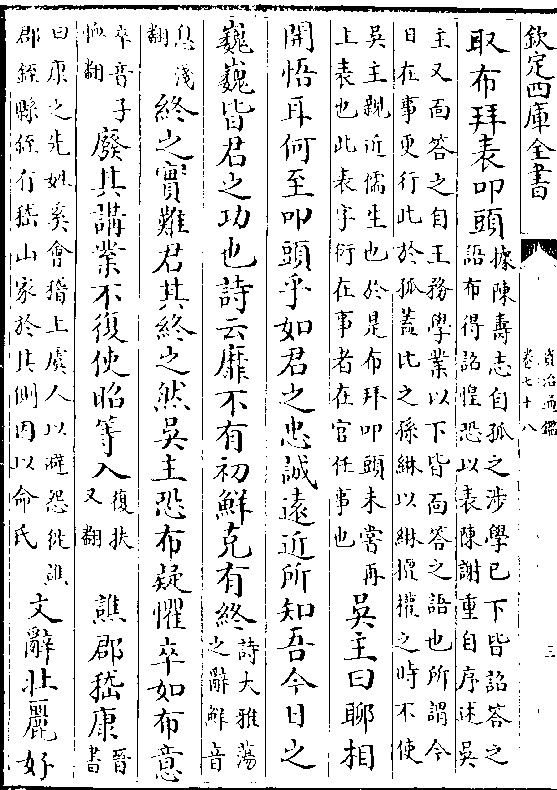 欽定四庫全書
資治通鑑
卷七十八
三
取布拜表叩頭
據陳壽志自孤之涉學已下皆詔答之
語布得詔惶恐以表陳謝重自序述吳
主又面答之自王務學業以下皆面答之語也所謂今
日在事更行此於孤蓋比之孫綝以綝擅權之時不使
吳主親近儒生也於是布拜叩頭未嘗再
上表也此表字衍在事者在官任事也
吳主曰聊相
開悟耳何至叩頭乎如君之忠誠遠近所知吾今日之
巍巍皆君之功也詩云靡不有初鮮克有終
詩大雅蕩
之辭鮮音
息淺
翻
終之實難君其終之然吳主恐布疑懼卒如布意
卒音子
恤翻
廢其講業不復使昭等入
復扶
又翻
譙郡嵇康
晉
書
曰康之先姓奚會稽上虞人以避怨徙譙
郡銍縣銍有嵇山家於其側因以命氏
文辭壯麗好